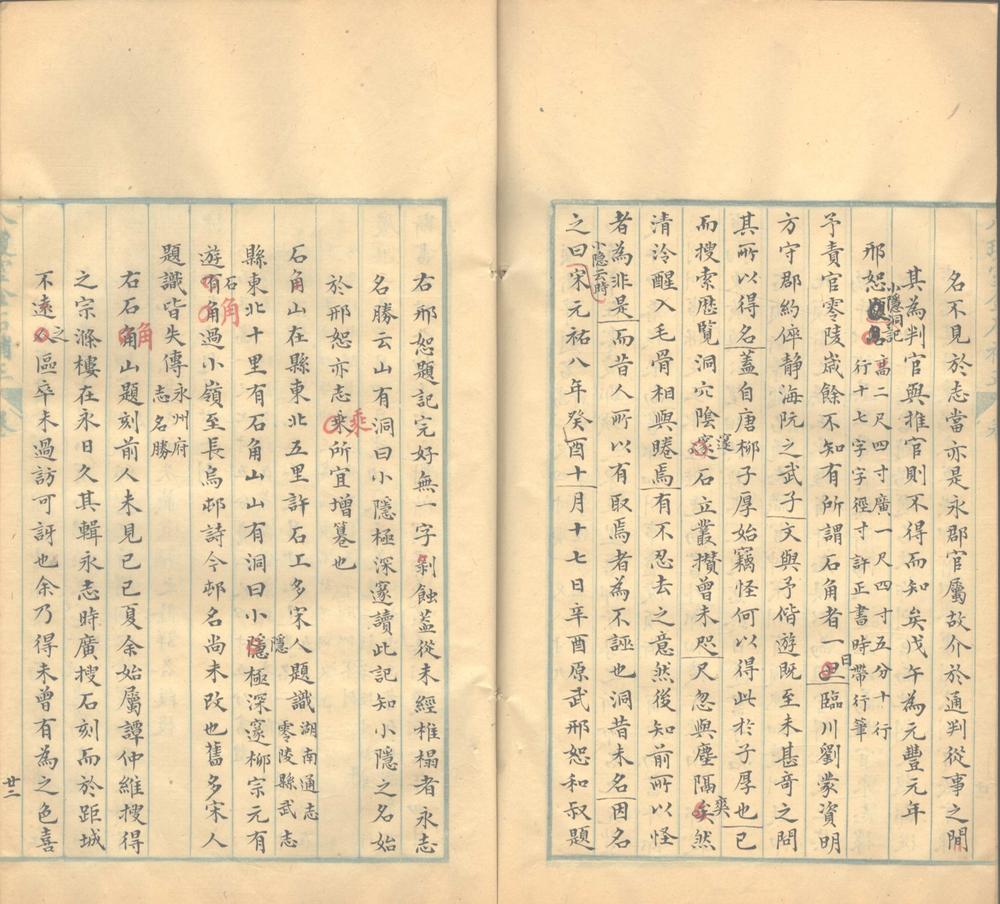 名不見於志當亦是永郡官屬故介於通判從事之間
其為判官與推官則不得而知矣戊午為元豐元年
邢恕題名小隱洞記高二尺四寸廣一尺四寸五分十行
行十七字字徑寸許正書時帶行筆
予責官零陵歲餘不知有所謂石角者一里日臨川劉蒙資明
方守郡約倅靜海阮之武子文與予偕遊既至未甚奇之問
其所以得名蓋自唐柳子厚始竊怪何以得此於子厚也已
而搜索歷覽洞穴陰邃邃石立叢攢曾未咫尺忽與塵隔矣爽然
清泠醒入毛骨相與睠焉有不忍去之意然後知前所以怪
者為非是而昔人所以有取焉者為不誣也洞昔未名因名
之曰小隱云時宋元祐八年癸酉十月十七日辛酉原武邢恕和叔題
右邢恕題記完好無一字剝蝕蓋從未經椎榻者永志
名勝云山有洞曰小隱極深邃讀此記知小隱之名始
於邢恕亦志乘乘所宜增纂也
石角山在縣東北五里許石工多宋人題識湖南通志
零陵縣武志
縣東北十里有石角山山有洞曰小隱隱極深邃柳宗元有
遊石角角過小嶺至長烏邨詩今邨名尚未改也舊多宋人
題識皆失傳永州府
志名勝
右石角角山題刻前人未見己巳夏余始屬譚仲維搜得
之宗滌樓在永日久其輯永志時廣搜石刻而於距城
不遠之區卒未過訪可訝也余乃得未曾有為之色喜
廿二